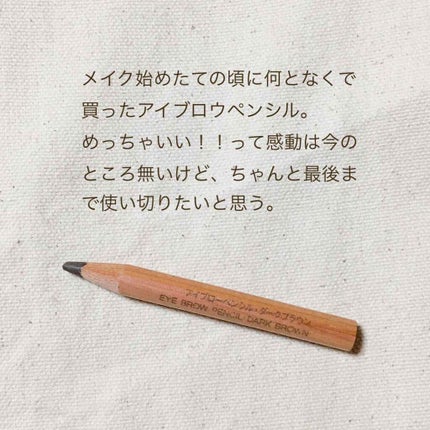 メイク始めたての頃に何となくで
買ったアイブロウペンシル。
めっちゃいい！！って感動は今の
ところ無いけど、ちゃんと最後ま
で使い切りたいと思う。
アイブローペンシル・ダークブラウン
EYE BROW PENCIL DARK BROWN